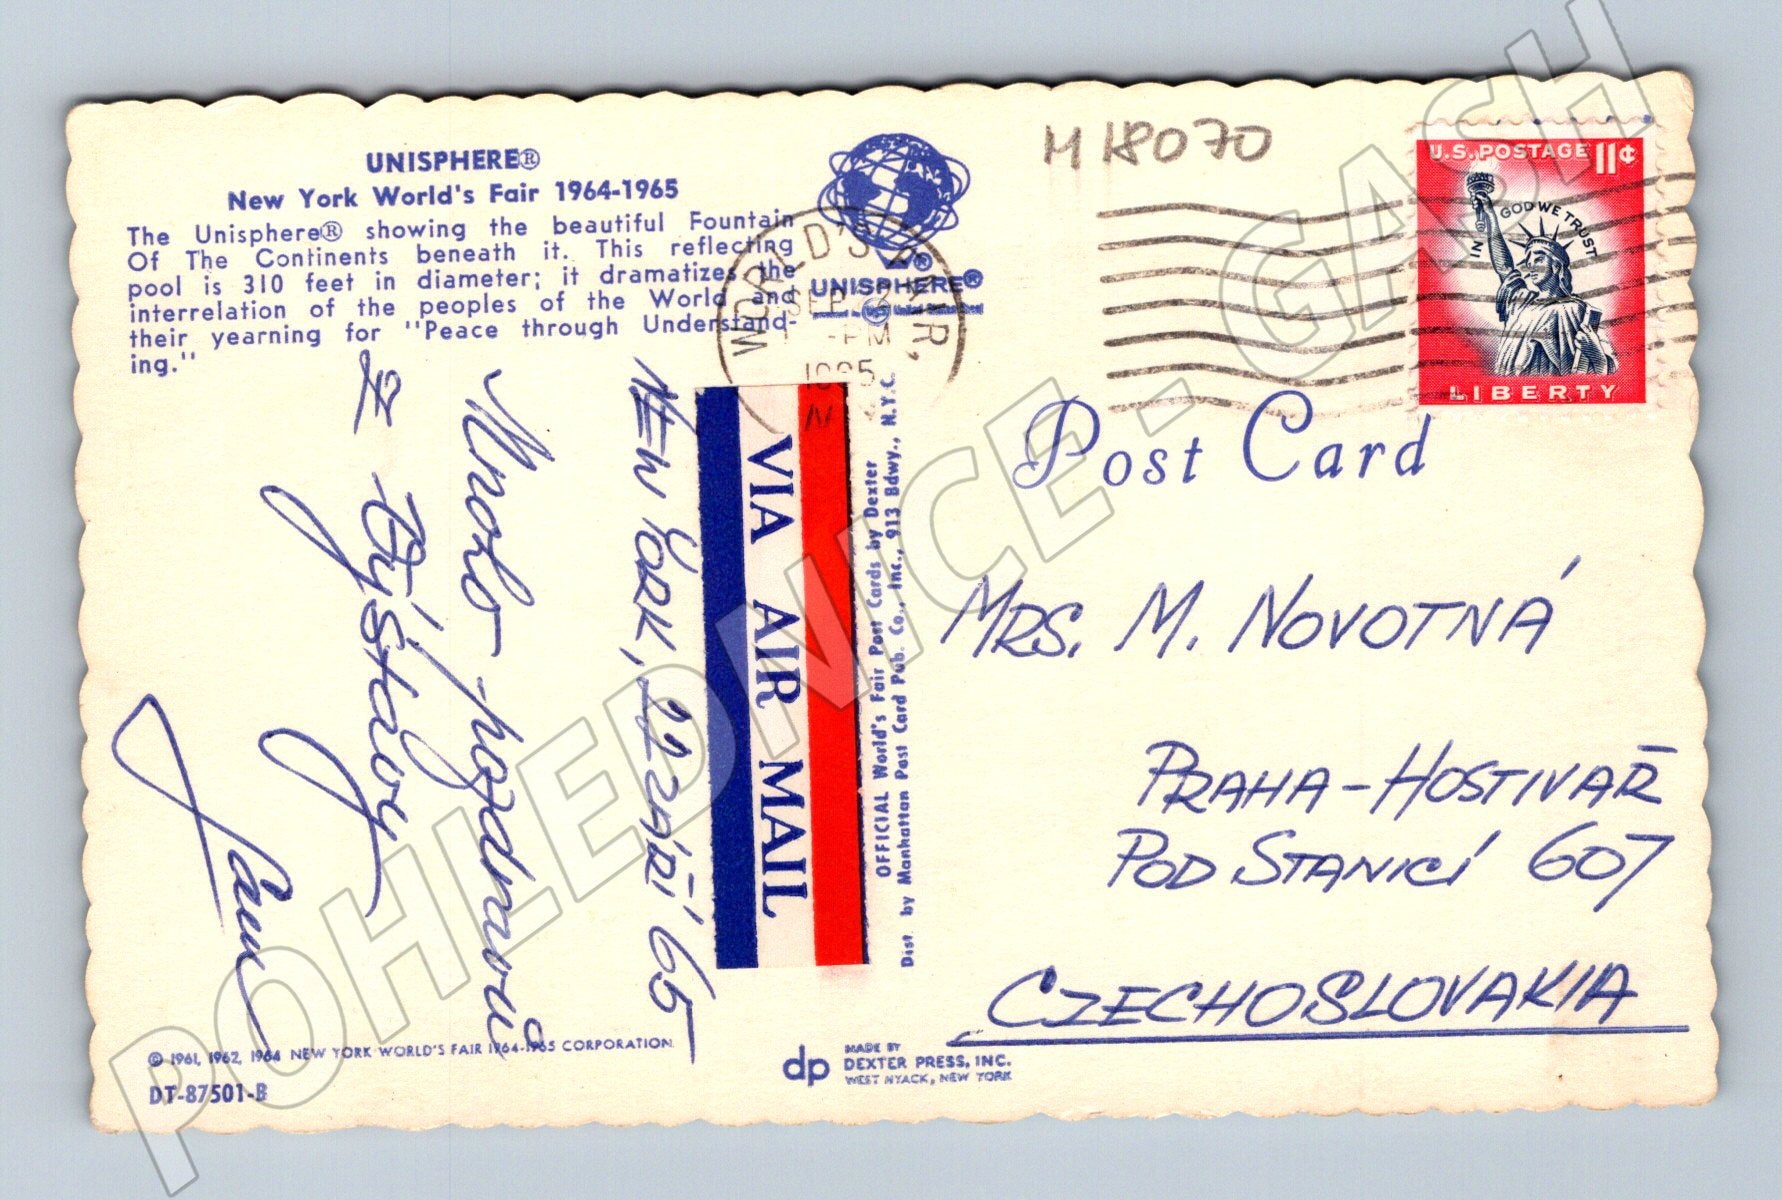 UNISPHERE®
New York World's Fair 1964-1965
The Unisphere® showing the beautiful Fountain
Of The Continents beneath it. This reflecting
pool is 310 feet in diameter; it dramatizes the
interrelation of the peoples of the World and
their yearning for "Peace through Understand-
ing."
UNISPHERE®
WORLD'S FAIR,
SEP
PM
M 18070
U.S. POSTAGE 11¢
IN GOD WE TRUST
LIBERTY
Post Card
VIA AIR MAIL
OFFICIAL World's Fair Post Cards by Dexter
Dist. by Manhattan Post Card Pub. Co., Inc., 913 Bdwy., N.Y.C.
NEW YORK, 22 ZÁŘÍ 65
Mnoho pozdravů
z
MRS. M. NOVOTNÁ
PRAHA-HOSTIVAŘ
POD STANICÍ 607
CZECHOSLOVAKIA
© 1961, 1962, 1964 NEW YORK WORLD'S FAIR 1964-1965 CORPORATION
DT-87501-B
dp MADE BY
DEXTER PRESS, INC.
WEST NYACK, NEW YORK
POHLEDNICE - GASH